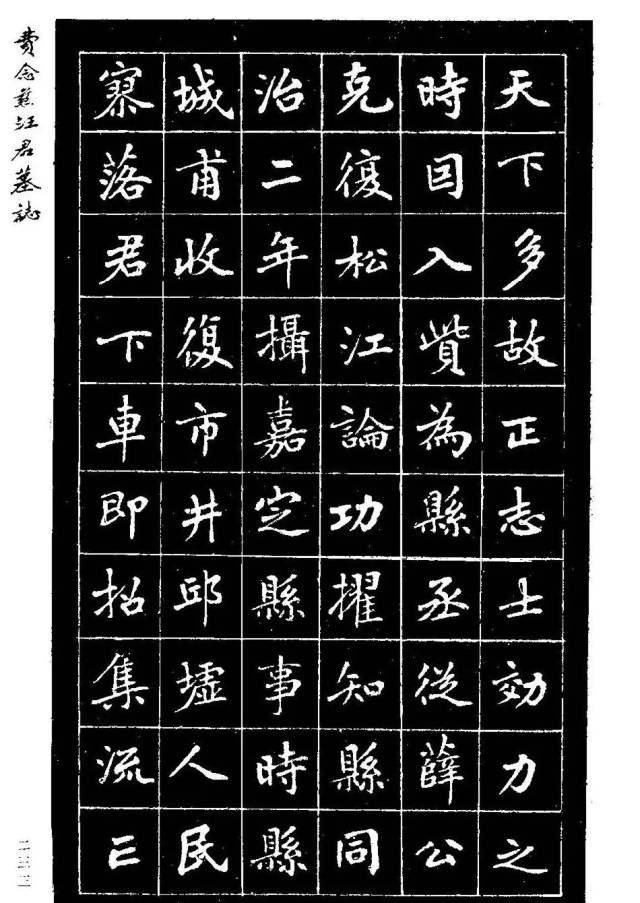 天下多故正志士効力之
時囙入貲為縣丞從薛公
克復松江論功擢知縣同
治二年攝嘉定縣事時縣
城甫收復市井邱墟人民
寮落君下車即招集流亡
費念慈汪君墓誌
二三三